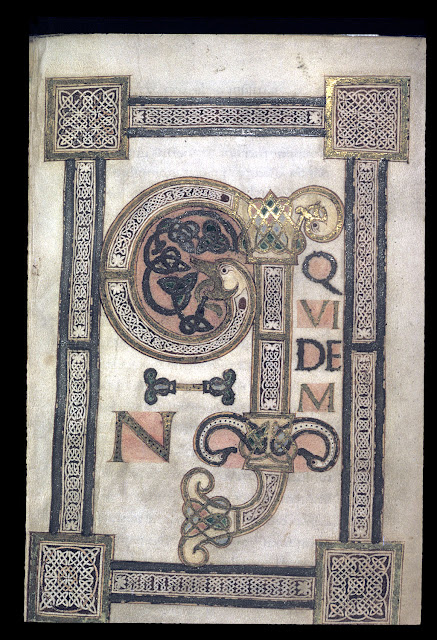 Q
N
Q
VI
DE
M